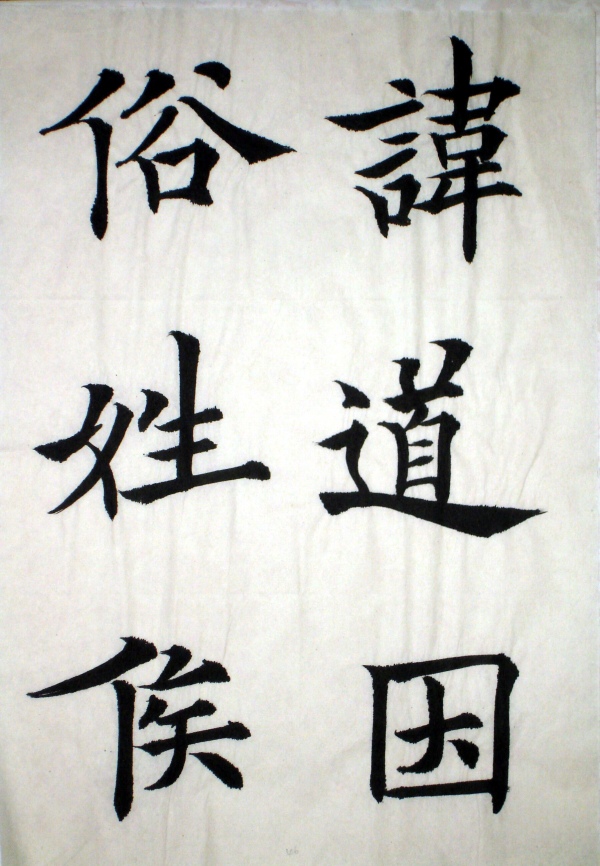 諱道因
俗姓侯